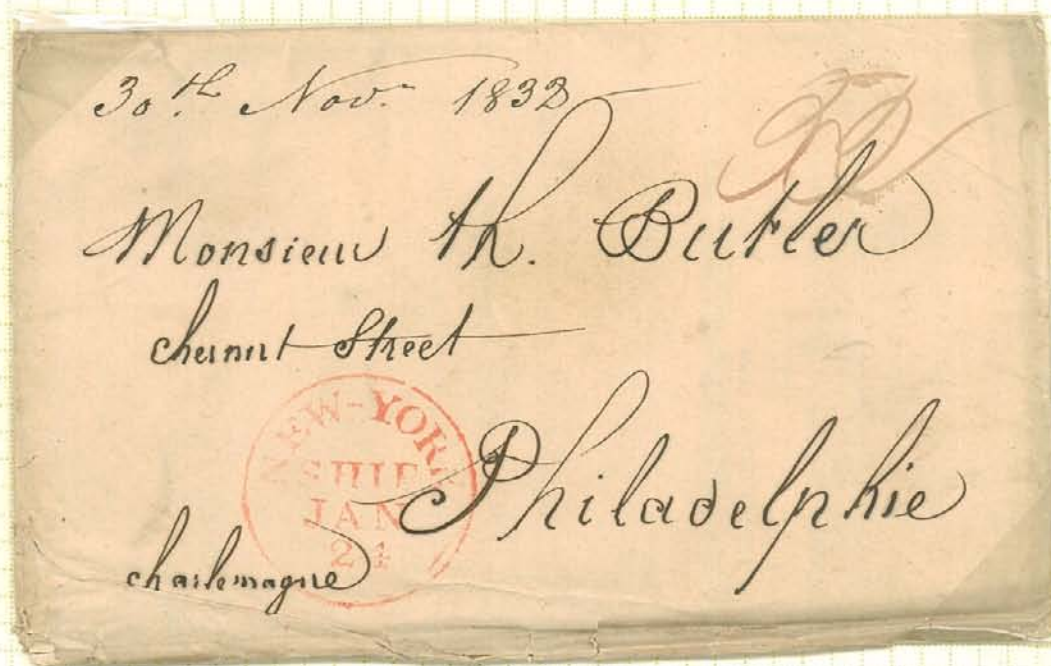 30th Nov. 1832
Monsieur th. Butler
chesnut Street
NEW-YORK
SHIP
JAN
24
Philadelphie
charlemagne